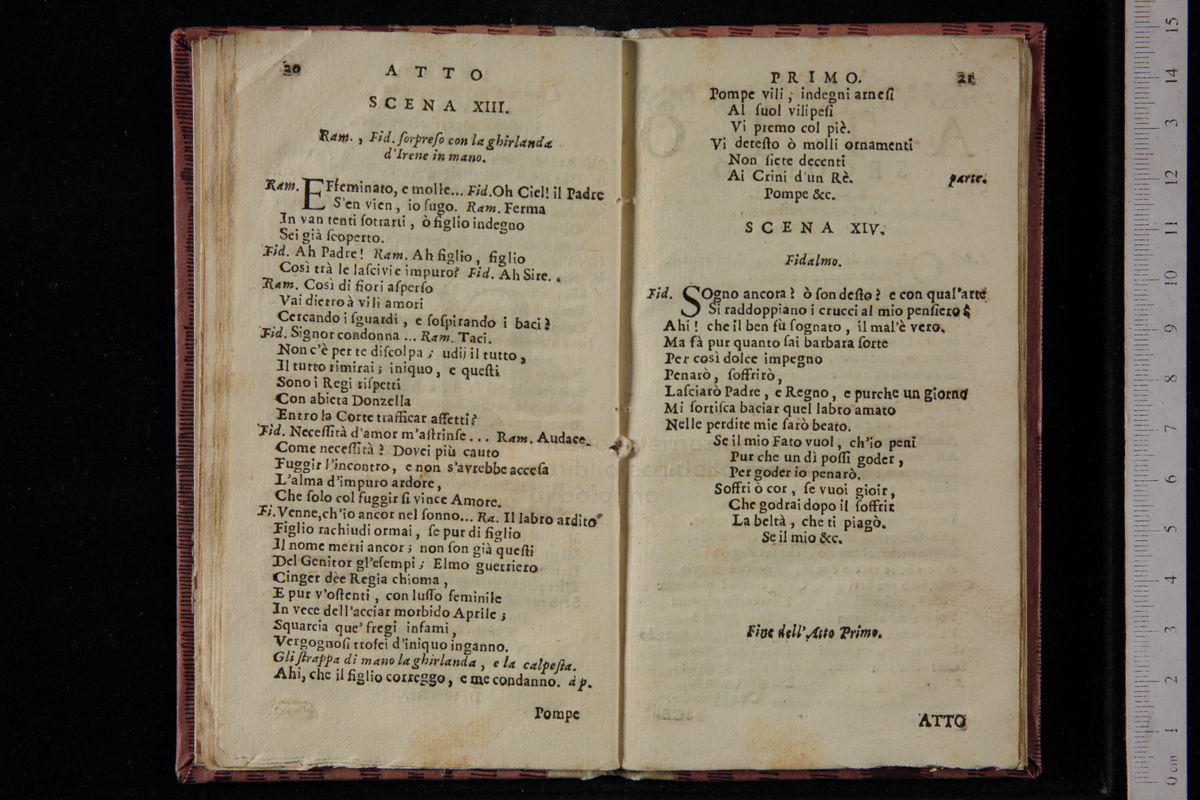 20 ATTO
SCENA XIII.
Ram., Fid. ſorpreſo con la ghirlanda
d'Irene in mano.
Ram. EFfeminato, e molle... Fid. Oh Ciel! il Padre
S'en vien, io fugo. Ram. Ferma
In van tenti ſotrarti, ò figlio indegno
Sei già ſcoperto.
Fid. Ah Padre! Ram. Ah figlio, figlio
Così trà le laſcivie impuro? Fid. Ah Sire..
Ram. Così di fiori aſperſo
Vai dietro à vili amori
Cercando i ſguardi, e ſoſpirando i baci?
Fid. Signor condonna... Ram. Taci.
Non c'è per te diſcolpa; udij il tutto,
Il tutto rimirai; iniquo, e queſti
Sono i Regi riſpetti
Con abieta Donzella
Entro la Corte trafficar affetti?
Fid. Neceſſità d'amor m'aſtrinſe... Ram. Audace.
Come neceſſità? Dovei più cauto
Fuggir l'incontro, e non s'avrebbe acceſa
L'alma d'impuro ardore,
Che ſolo col fuggir ſi vince Amore.
Fi. Venne, ch'io ancor nel ſonno... Ra. Il labro ardito
Figlio rachiudi ormai, ſe pur di figlio
Il nome merti ancor; non ſon già queſti
Del Genitor gl'eſempi; Elmo guerriero
Cinger dee Regia chioma,
E pur v'oſtenti, con luſſo feminile
In vece dell'acciar morbido Aprile;
Squarcia que' fregi infami,
Vergognoſi trofei d'iniquo inganno.
Gli ſtrappa di mano la ghirlanda, e la calpeſta.
Ahi, che il figlio correggo, e me condanno. à p.
Pompe
PRIMO. 21
Pompe vili, indegni arneſi
Al ſuol vilipeſi
Vi premo col piè.
Vi deteſto ò molli ornamenti
Non ſiete decenti
Ai Crini d'un Rè. parte.
Pompe &c.
SCENA XIV.
Fidalmo.
Fid. SOgno ancora? ò ſon deſto? e con qual'arte
Si raddoppiano i crucci al mio penſiero?
Ahi! che il ben fù ſognato, il mal'è vero.
Ma fà pur quanto ſai barbara ſorte
Per così dolce impegno
Penarò, ſoffrirò,
Laſciarò Padre, e Regno, e purche un giorno
Mi ſortiſca baciar quel labro amato
Nelle perdite mie ſarò beato.
Se il mio Fato vuol, ch'io peni
Pur che un dì poſſi goder,
Per goder io penarò.
Soffri ò cor, ſe vuoi gioir,
Che godrai dopo il ſoffrir
La beltà, che ti piagò.
Se il mio &c.
Fine dell'Atto Primo.
ATTO